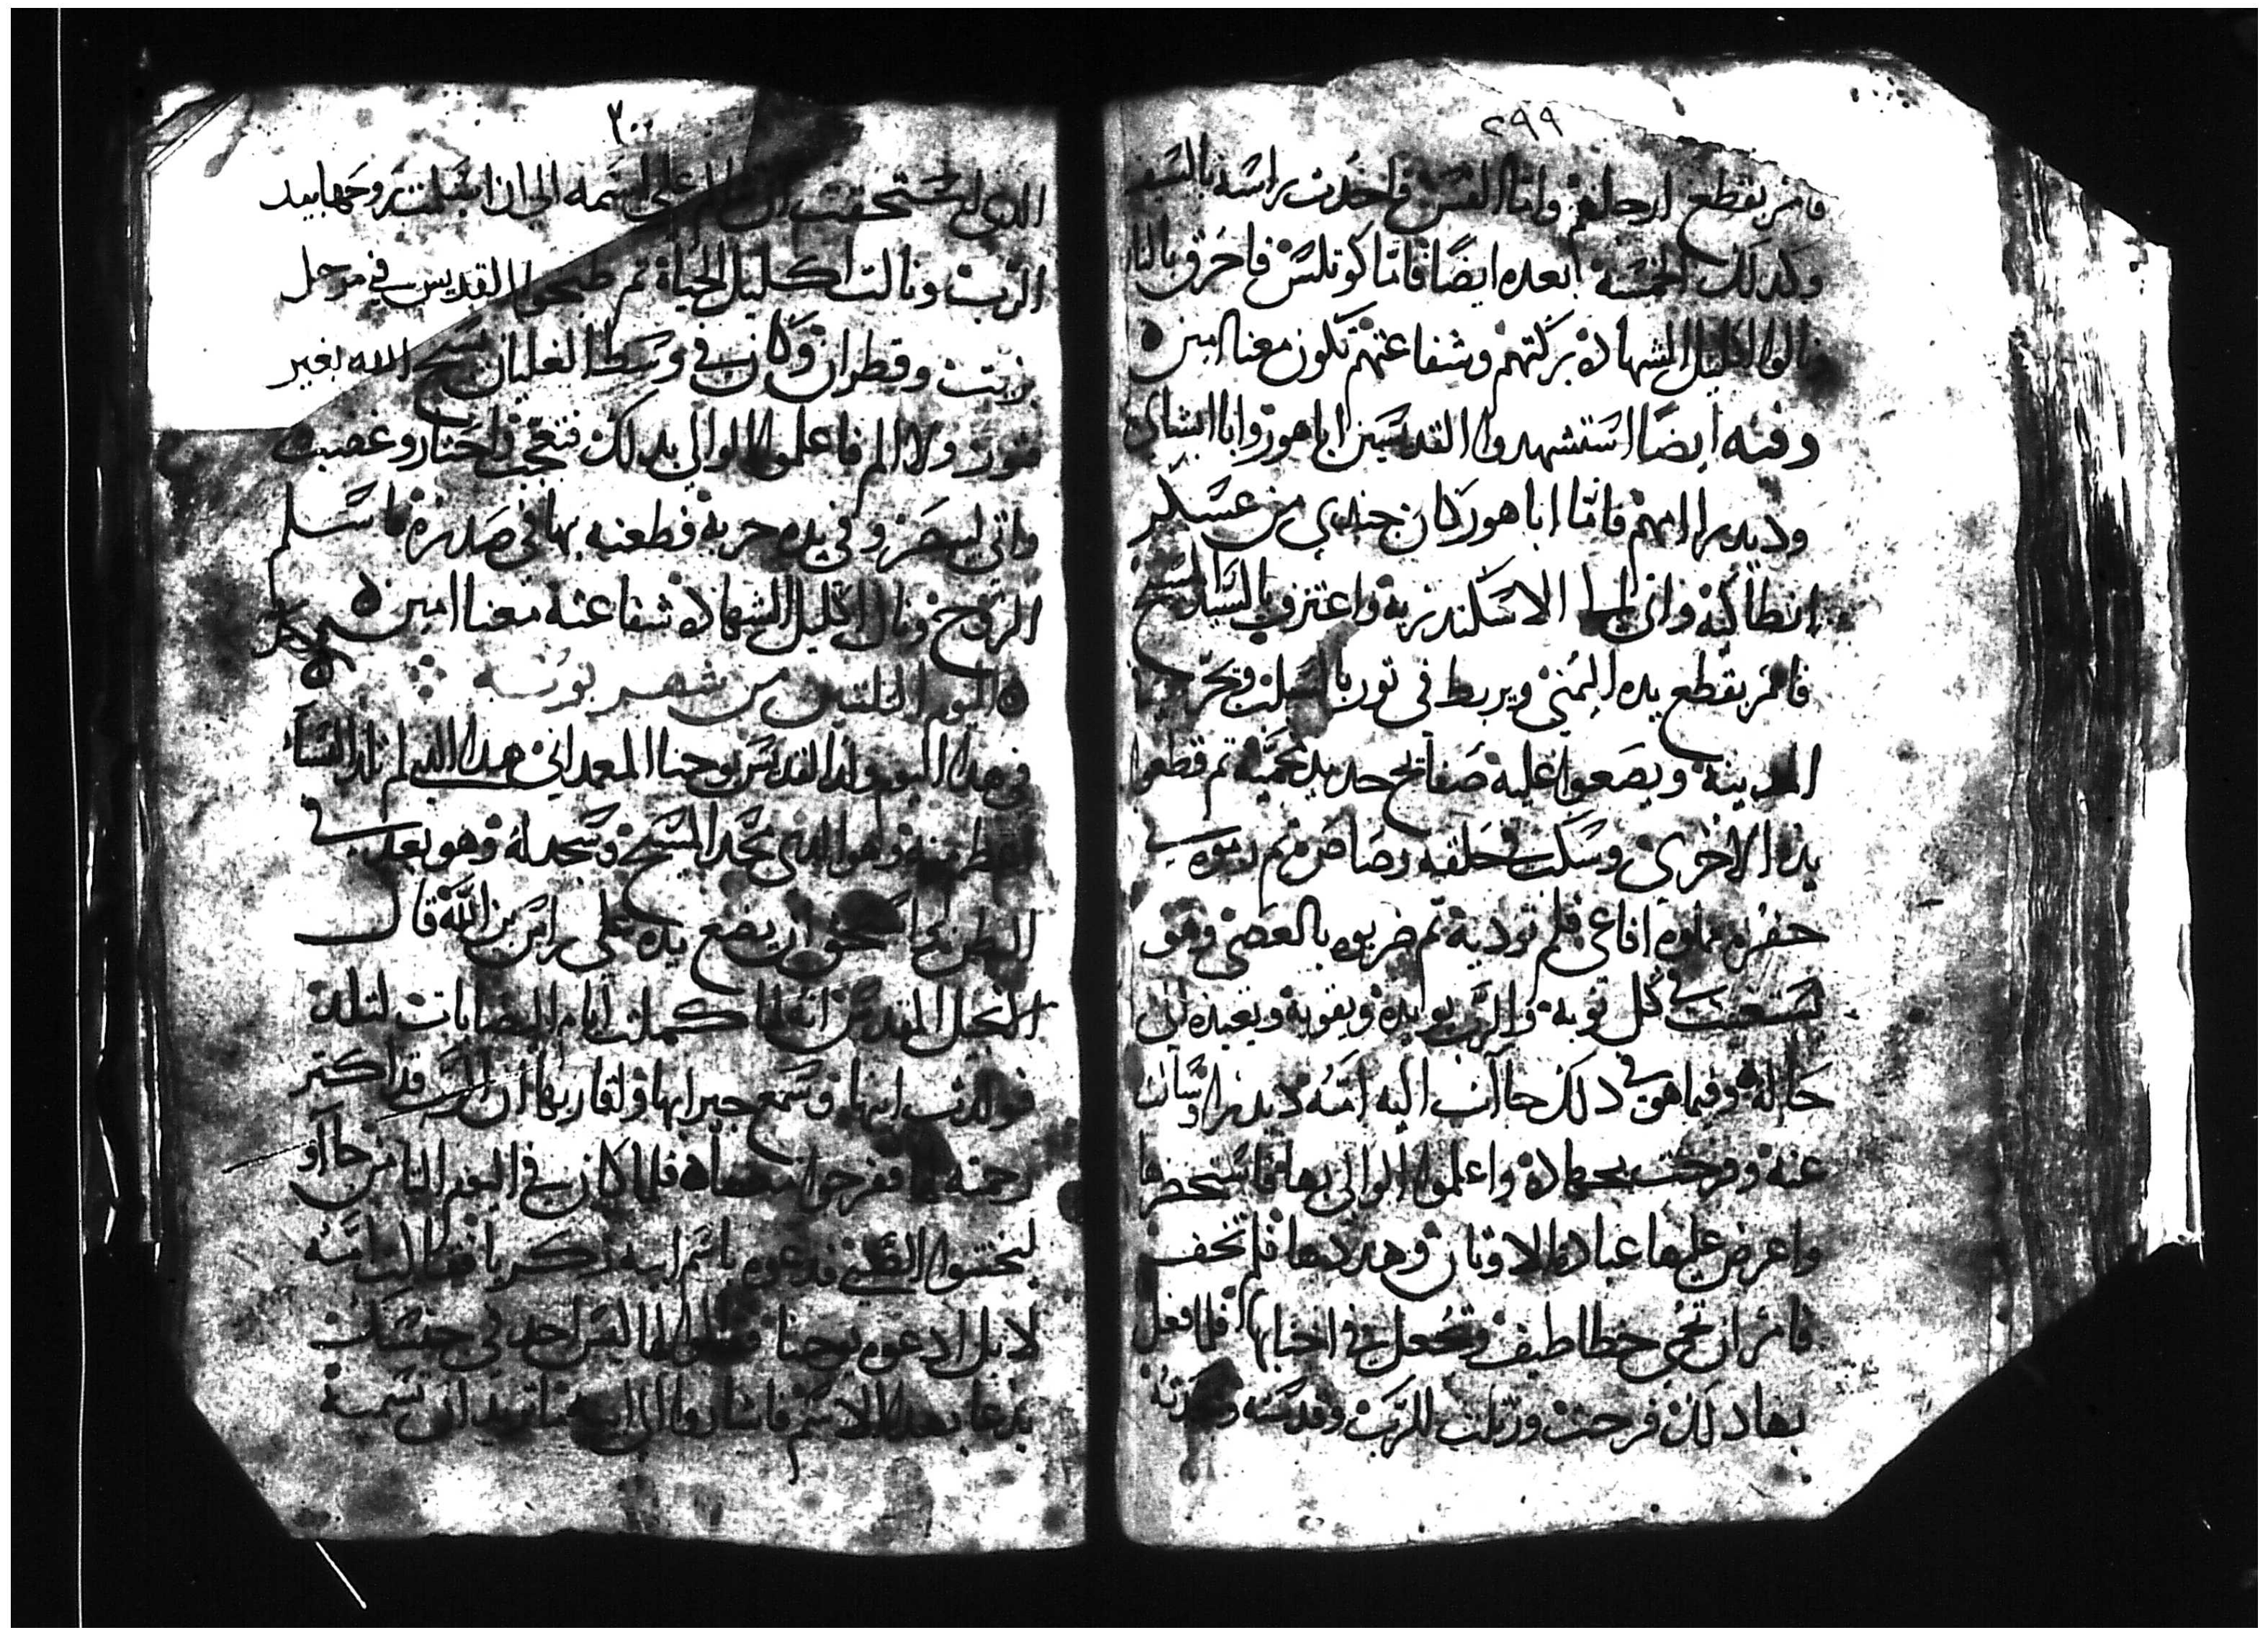 ٢٩٩
فامر بقطع ارجلهم واما القس فاخدت راسه بالسيف
وكدلك الخمسة بعده ايضا فاما كوتلس فاحرق بالنار
ونالوا اكليل الشهادة بركتهم وشفاعتهم تكون معنا امين
وفيه ايضا استشهدوا القديسين اباهور وابا ابشاي
وديدرا امهم فاما اباهور كان جندي من عسكر
انطاكية واتى الى الاسكندرية واعترف بالسيد المسيح
فامر بقطع يده اليمنى ويربط في تور بالسلب وتجر
المدينة ويضعوا عليه صفايح حديد محمية تم قطعوا
يده الاخرى وسكب في حلقه رصاص تم رموه في
حفره مملوه افاعي فلم توديه تم ضربوه بالعصي وهو
يستغيت في كل نوبة والرب يوايده ويقويه ويعيده الى
حاله وفيما هو في دلك جاات اليه امه ديدرا وسالت
عنه وفرحت بجهاده واعلموا الوالي بها فاستحضرها
واعرض عليها عبادة الاوتان وهددها فلم تخف
فامر ان تحمى خطاطيف وتجعل في اجنابها فلما فعل
بها دلك فرحت ورتلت للرب وقدسته ومجدته
٣٠٠
الدي استحقت ان تتالم على اسمه الى ان اسلمت روحها بيد
الرب ونالت اكليل الحياة تم طبخوا القديس في مرجل
زيت وقطران وكان في وسط الغليان يسبح الله بغير
فتور ولا الم فاعلموا الوالي بدلك فتعجب واحتار وغضب
واتى ليحر وفي يده حربة فطعنه بها في صدره فاسلم
الروح ونال اكليل الشهادة شفاعته معنا امين
اليوم التلتين من شهر بوونه
في هدا اليوم ولد القديس يوحنا المعمداني هدا الدي لم تلد النسا
اعظم منه وهو الدي مجد المسيح وسجد له وهو بعد في
البطن استحق ان يضع يده على راس بن الله قال
الانجيل المقدس انه لما كملت ايام اليصابات لتلد
فولدت ابنها وسمع جيرانها واقاربها ان الرب قد اكتر
رحمته لها ففرحوا معها فلما كان في اليوم التامن جاآو
ليختنوا الصبي فدعوه باسم ابيه زكريا فقالت امه
لا بل ادعوه يوحنا فقالوا لها ليس احد في جنسك
يدعا بهدا الاسم فاشاروا الى ابيه ما تريد ان تسميه